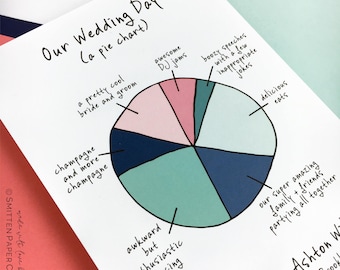 Our Wedding Day
(a pie chart)
awesome
DJ jams
boozy speeches
with a few
inappropriate
jokes
a pretty cool
bride and groom
delicious
eats
champagne
and more
champagne
our super amazing
family + friends
partying all together
awkward
but
Ashton
©SMITTEN PAPER
made with love